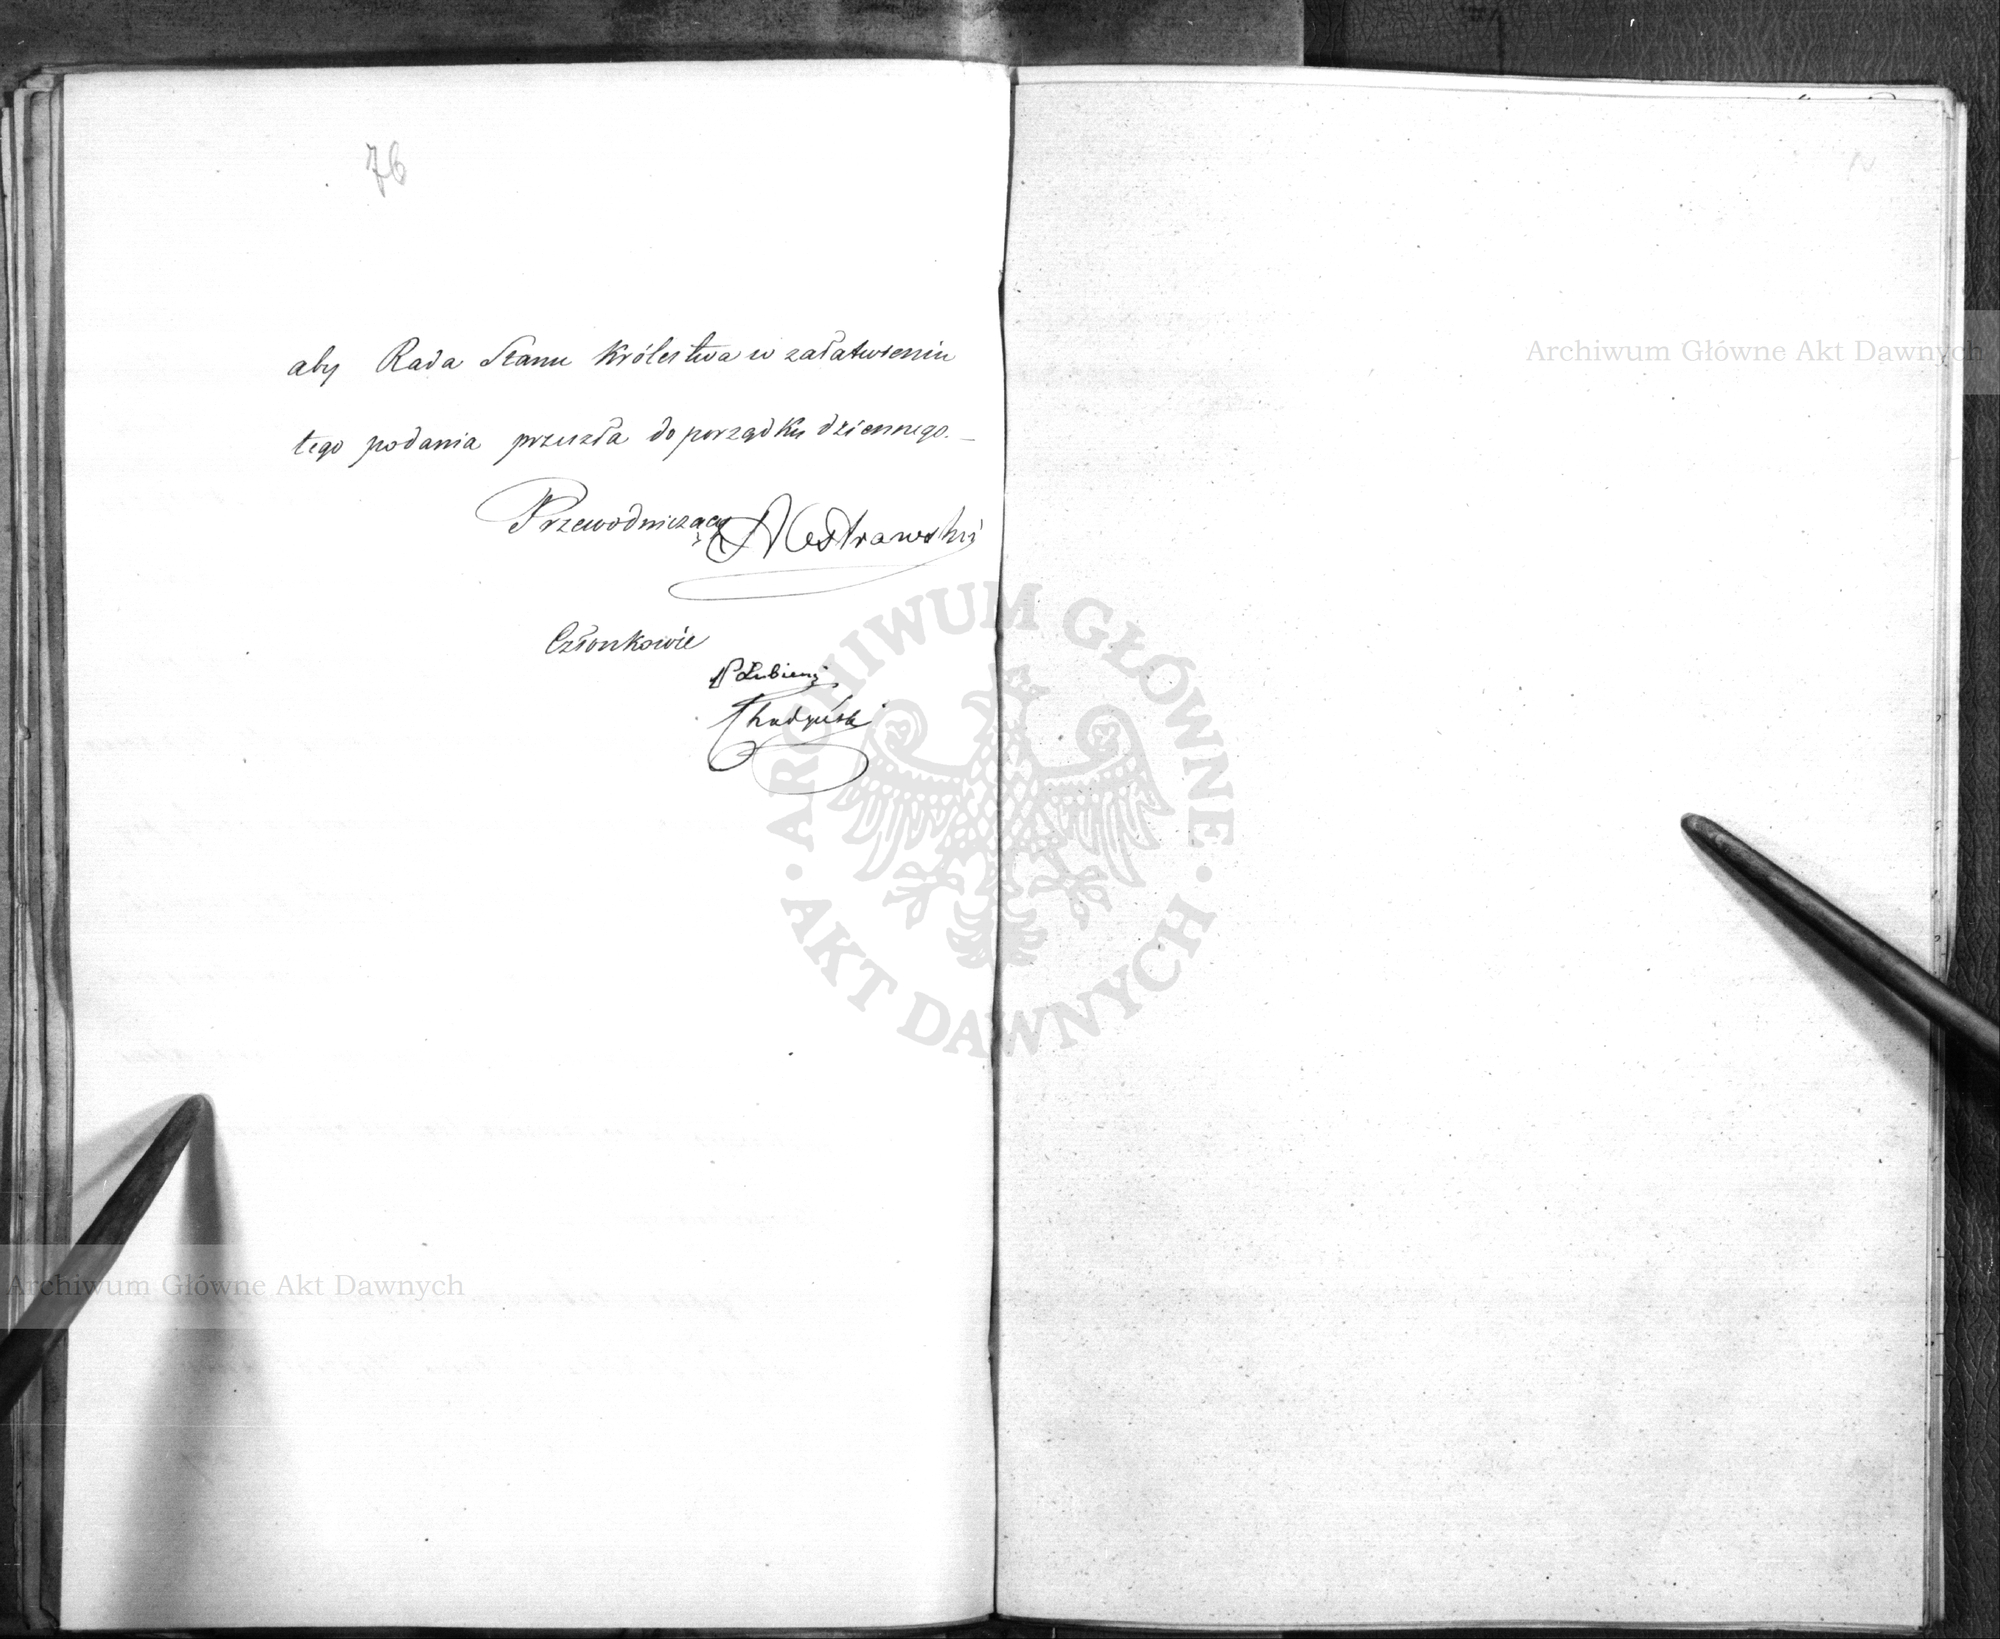 76
aby Rada Stanu Królestwa w załatwieniu
tego podania przeszła do porządku dziennego. _
Przewodniczący AOstrowski
Członkowie
Łubieński
Archiwum Główne Akt Dawnych
ARCHIWUM GŁÓWNE
AKT DAWNYCH
Archiwum Główne Akt Dawnych